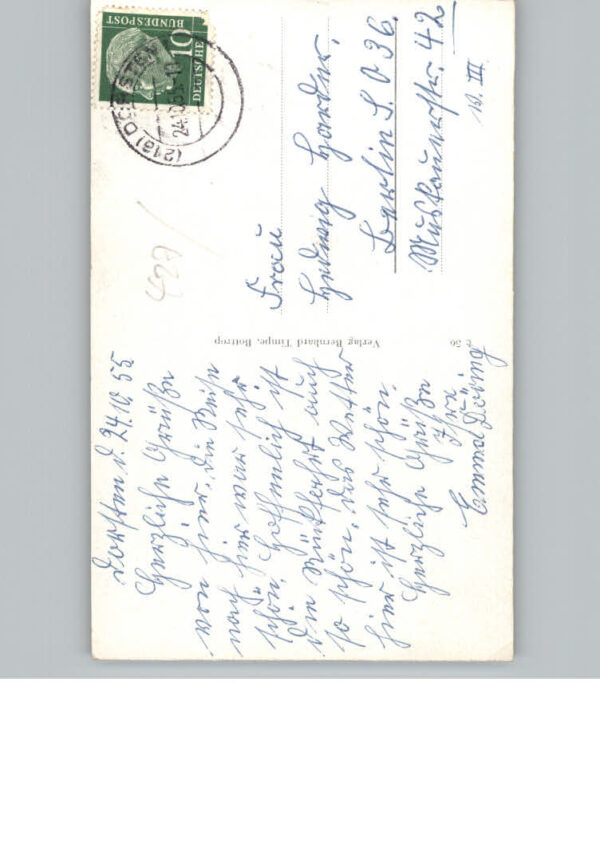 Dorsten d. 24.10.55.
Herzliche Grüße
von hier, die Reise
nach hier war sehr
schön. Hoffenlich ist
die Rückfahrt auch
so schön, das Wetter
hier ist sehr schön.
Herzliche Grüße
Ihre
Emma Döring
DEUTSCHE
BUNDESPOST
10
(21a) DORSTEN
24.10.55
Frau
Hedwig Harder.
Berlin S. O 36
Muskauerstr. 42
III
Verlag Bernhard Timpe, Bottrop
56